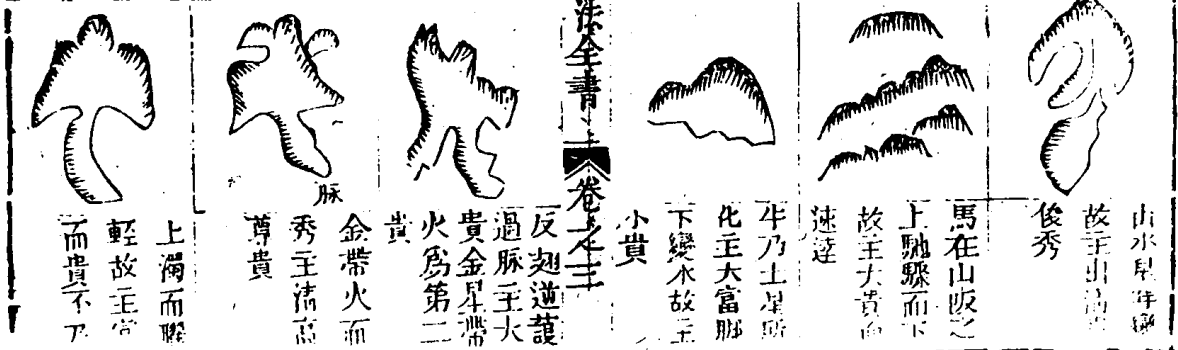 山水星
故主出
俊秀
馬在山坂之
上馳驟而下
故主大貴而
速達
牛乃土星所
化主大富腳
下變水故主
小貴
法全書
卷之三
反翅逆
過脉主大
貴金星帶
火爲第二
貴
金帶火而
秀主清高
尊貴
脉
上濁而
輕故主富
而貴不